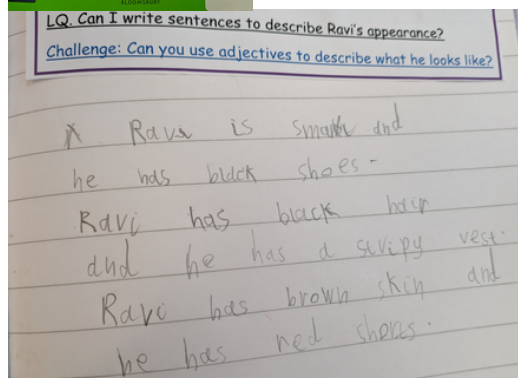 BLOOMSBURY
LQ. Can I write sentences to describe Ravi's appearance?
Challenge: Can you use adjectives to describe what he looks like?
Ravi is smart and
he has black shoes.
Ravi has black hair
and he has a stripy vest.
Ravi has brown skin and
he has red shors.